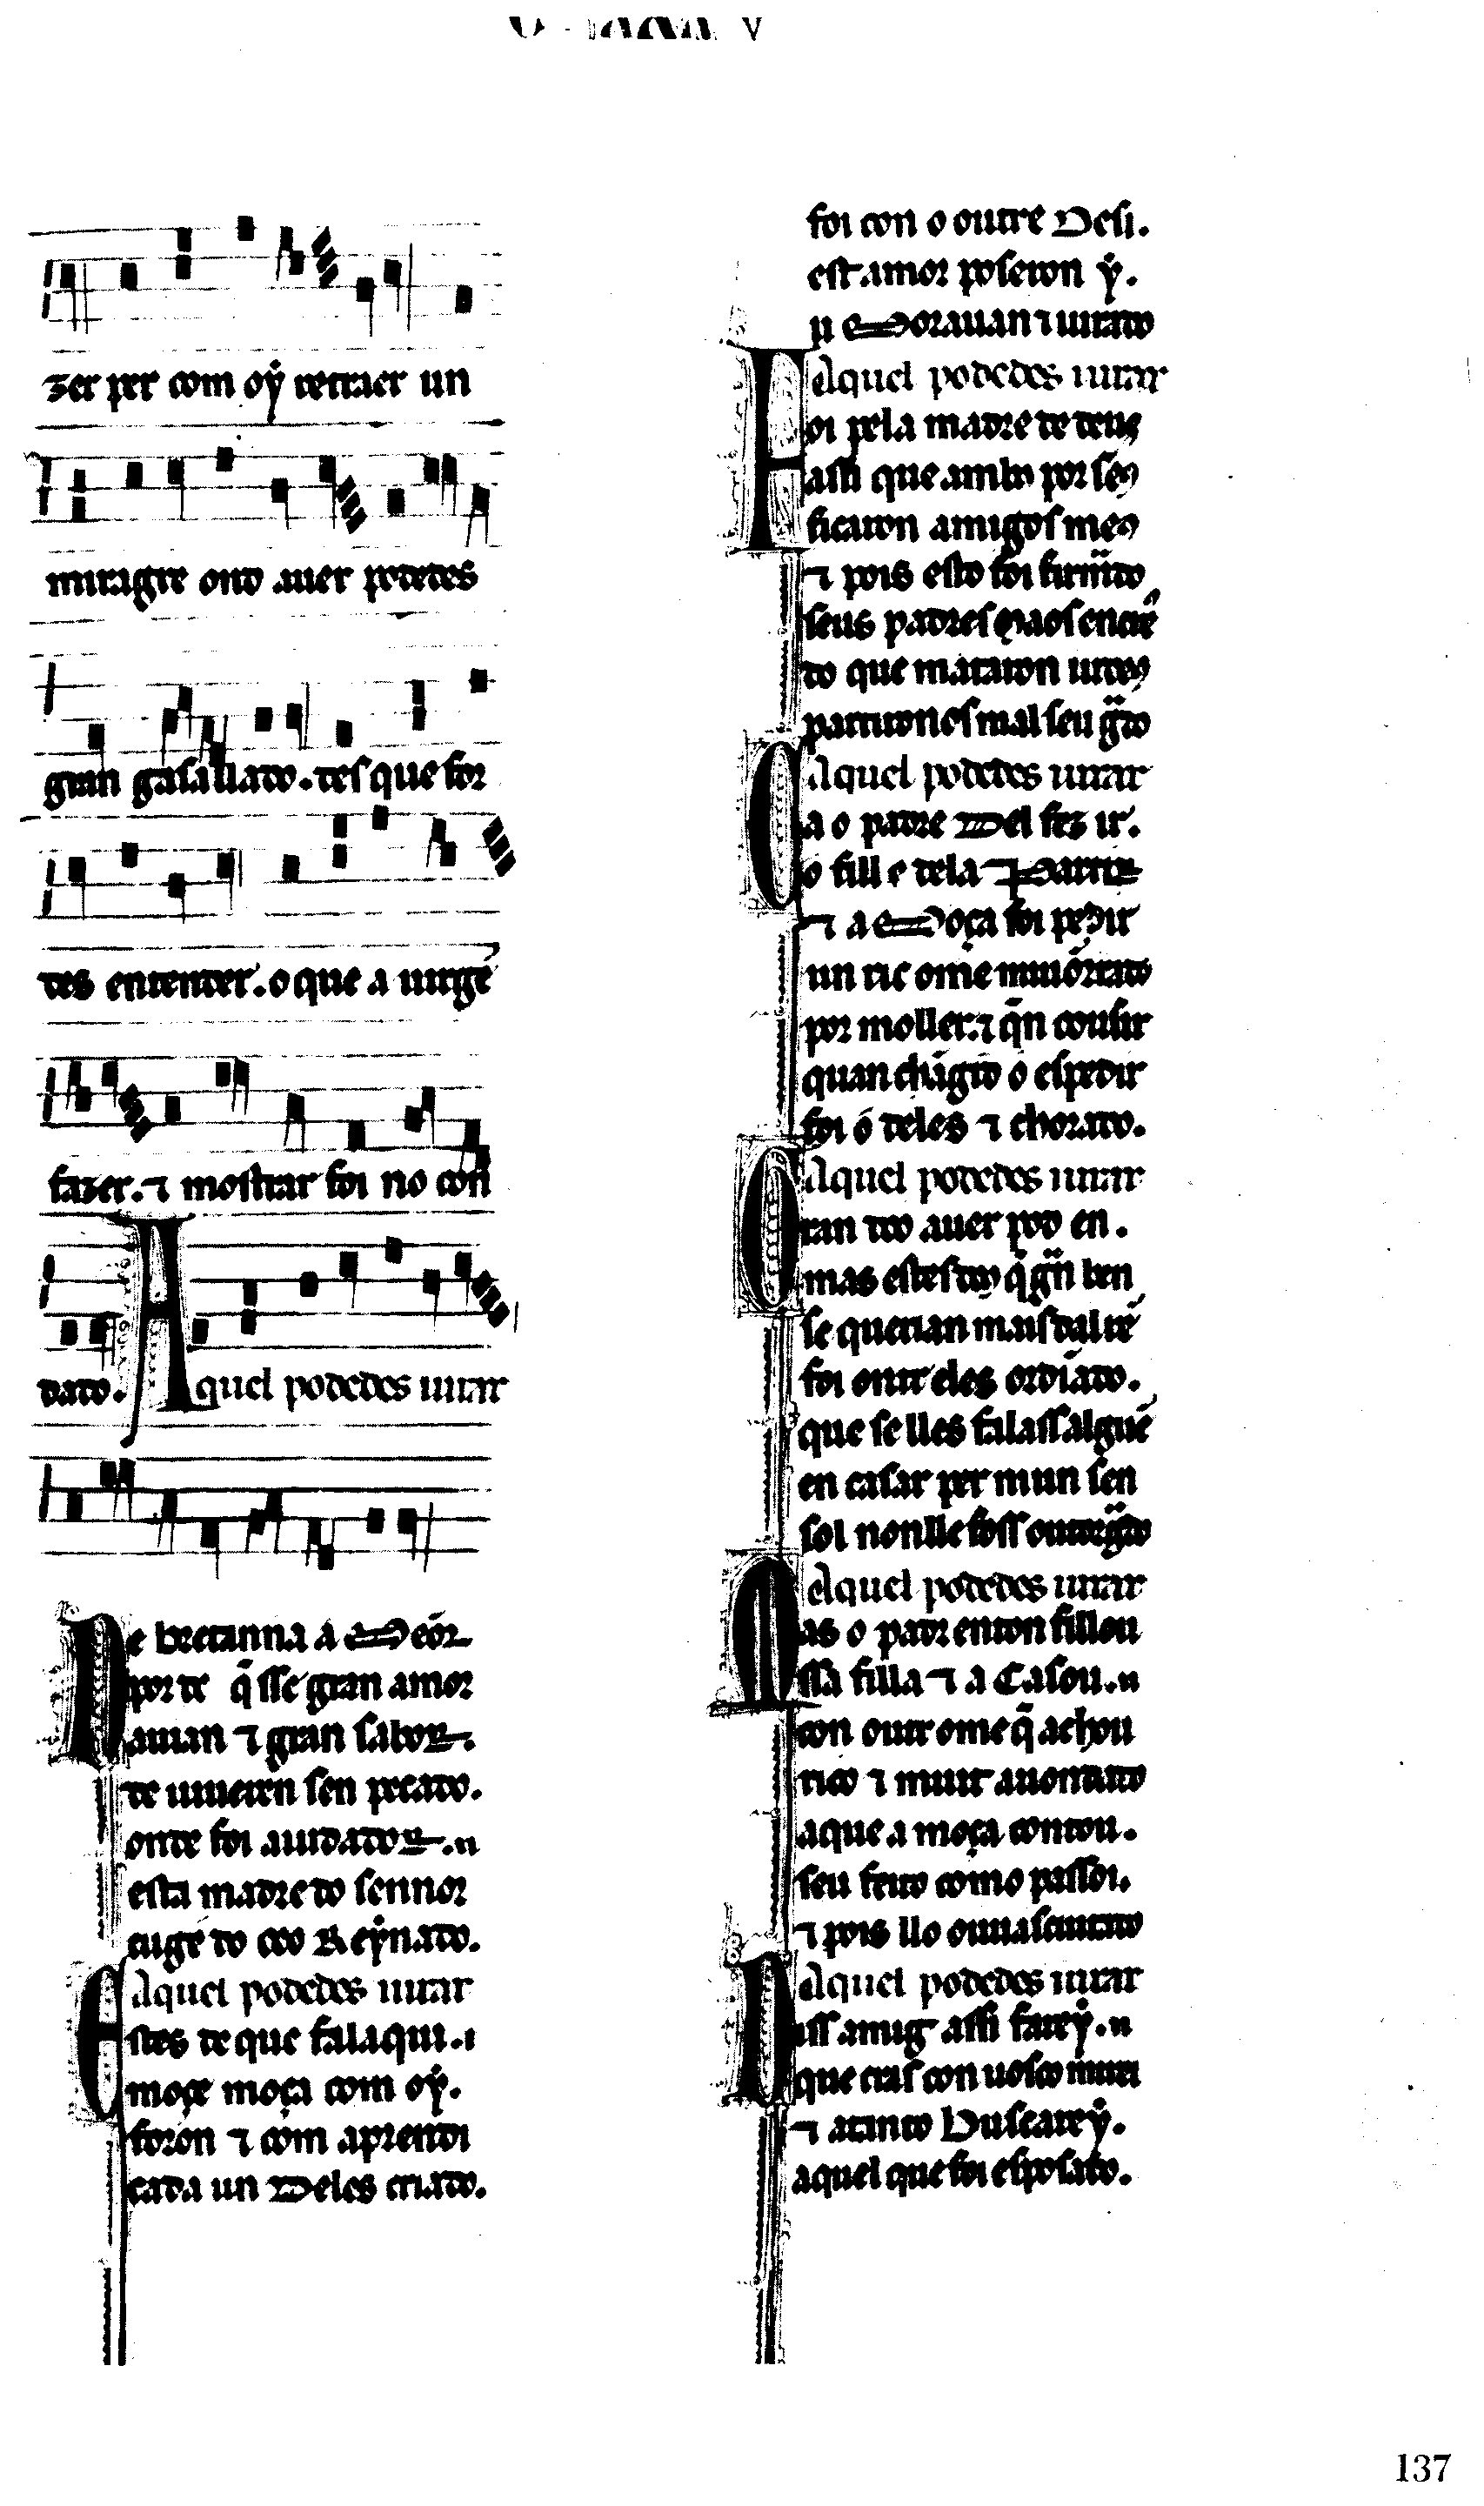 zer per com oẏ retraer un
miragre ond auer podedes
gran gasallado. des que for
des entender. o que a uirgẽ
fazer. ⁊ mostrar foi no con
dado. Aquel podedes iurar
De bretanna a Meor
por de q̃ sse gran amor
auian ⁊ gran sabor.
de uiueren sen pecado.
onde foi aiudador.
esta madre do sennor
cuge do ceo Reẏnado.
Aquel podedes iurar
Estes de que falaqui.
moçe moça com oẏ.
foron ⁊ com aprendi
cada un deles criado.
foi con o outre desi.
est amor poseron ẏ.
u Morauan ⁊ iurado
Aquel podedes iurar
Foi pela madre de deus
assi que ambos por seus
ficaron amigos meus
⁊ pois esto foi firmado
seus padres
do que mataron iudeus
partironos mal seu grado
Aquel podedes iurar
Ca o padre del fez ir.
o fill e dela partir
⁊ a Moça foi pedir
un ric ome muit onrrado
por moller. ⁊ q̃n cousir
quan chagid o espedir
foi o deles ⁊ chorado.
Aquel podedes iurar
Qran doo auer pod en.
mas estes dous q̃ gran ben
se querian mais dal ren
foi ontr eles ordĩado.
que se lles falass alguẽ
en casar per niun sen
sol non lle foss outorgado
Aquel podedes iurar
Mas o padr enton fillou
ssa filla ⁊ a Casou.
con outr ome q̃ achou
rico ⁊ muit auondado
aque a moça contou.
seu feito como passou.
⁊ pois llo ouuascuitado
Aquel podedes iurar
Diss amig assi fareẏ.
que cras con uosco mirei
⁊ atanto buscareẏ.
aquel que foi esposado.
137